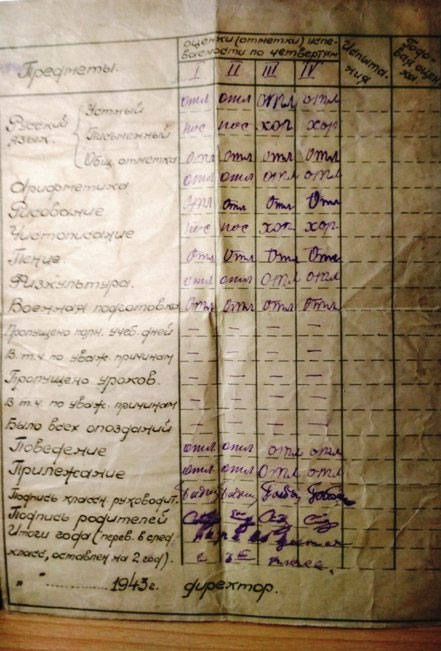 Предметы.
оценки (отметки) успе-
ваемости по четвертям
I II III IV
Испыта-
ния
Годо-
вая оцен-
ка.
Русский язык. Устный отл отл отл отл
Письменный пос пос хор хор
Общ. отметка Отл Отл Отл Отл
Арифметика отл отл отл отл
Рисование Отл Отл Отл Отл
Чистописание пос пос хор хор
Пение Отл Отл Отл Отл
Физкультура. отл отл отл отл
Военная подготовка Отл Отл Отл Отл
Пропущено полн. учеб. дней – – – –
В т.ч. по уваж. причинам – – – –
Пропущено уроков. – – – –
В т.ч. по уваж. причинам – – – –
Было всех опозданий – – – –
Поведение отл отл отл отл
Прилежание отл отл отл отл
Подпись классн. руководит.
Подпись родителей
Итоги года (перев. в след.
класс, оставлен на 2 год).
" " 1943 г. директор.